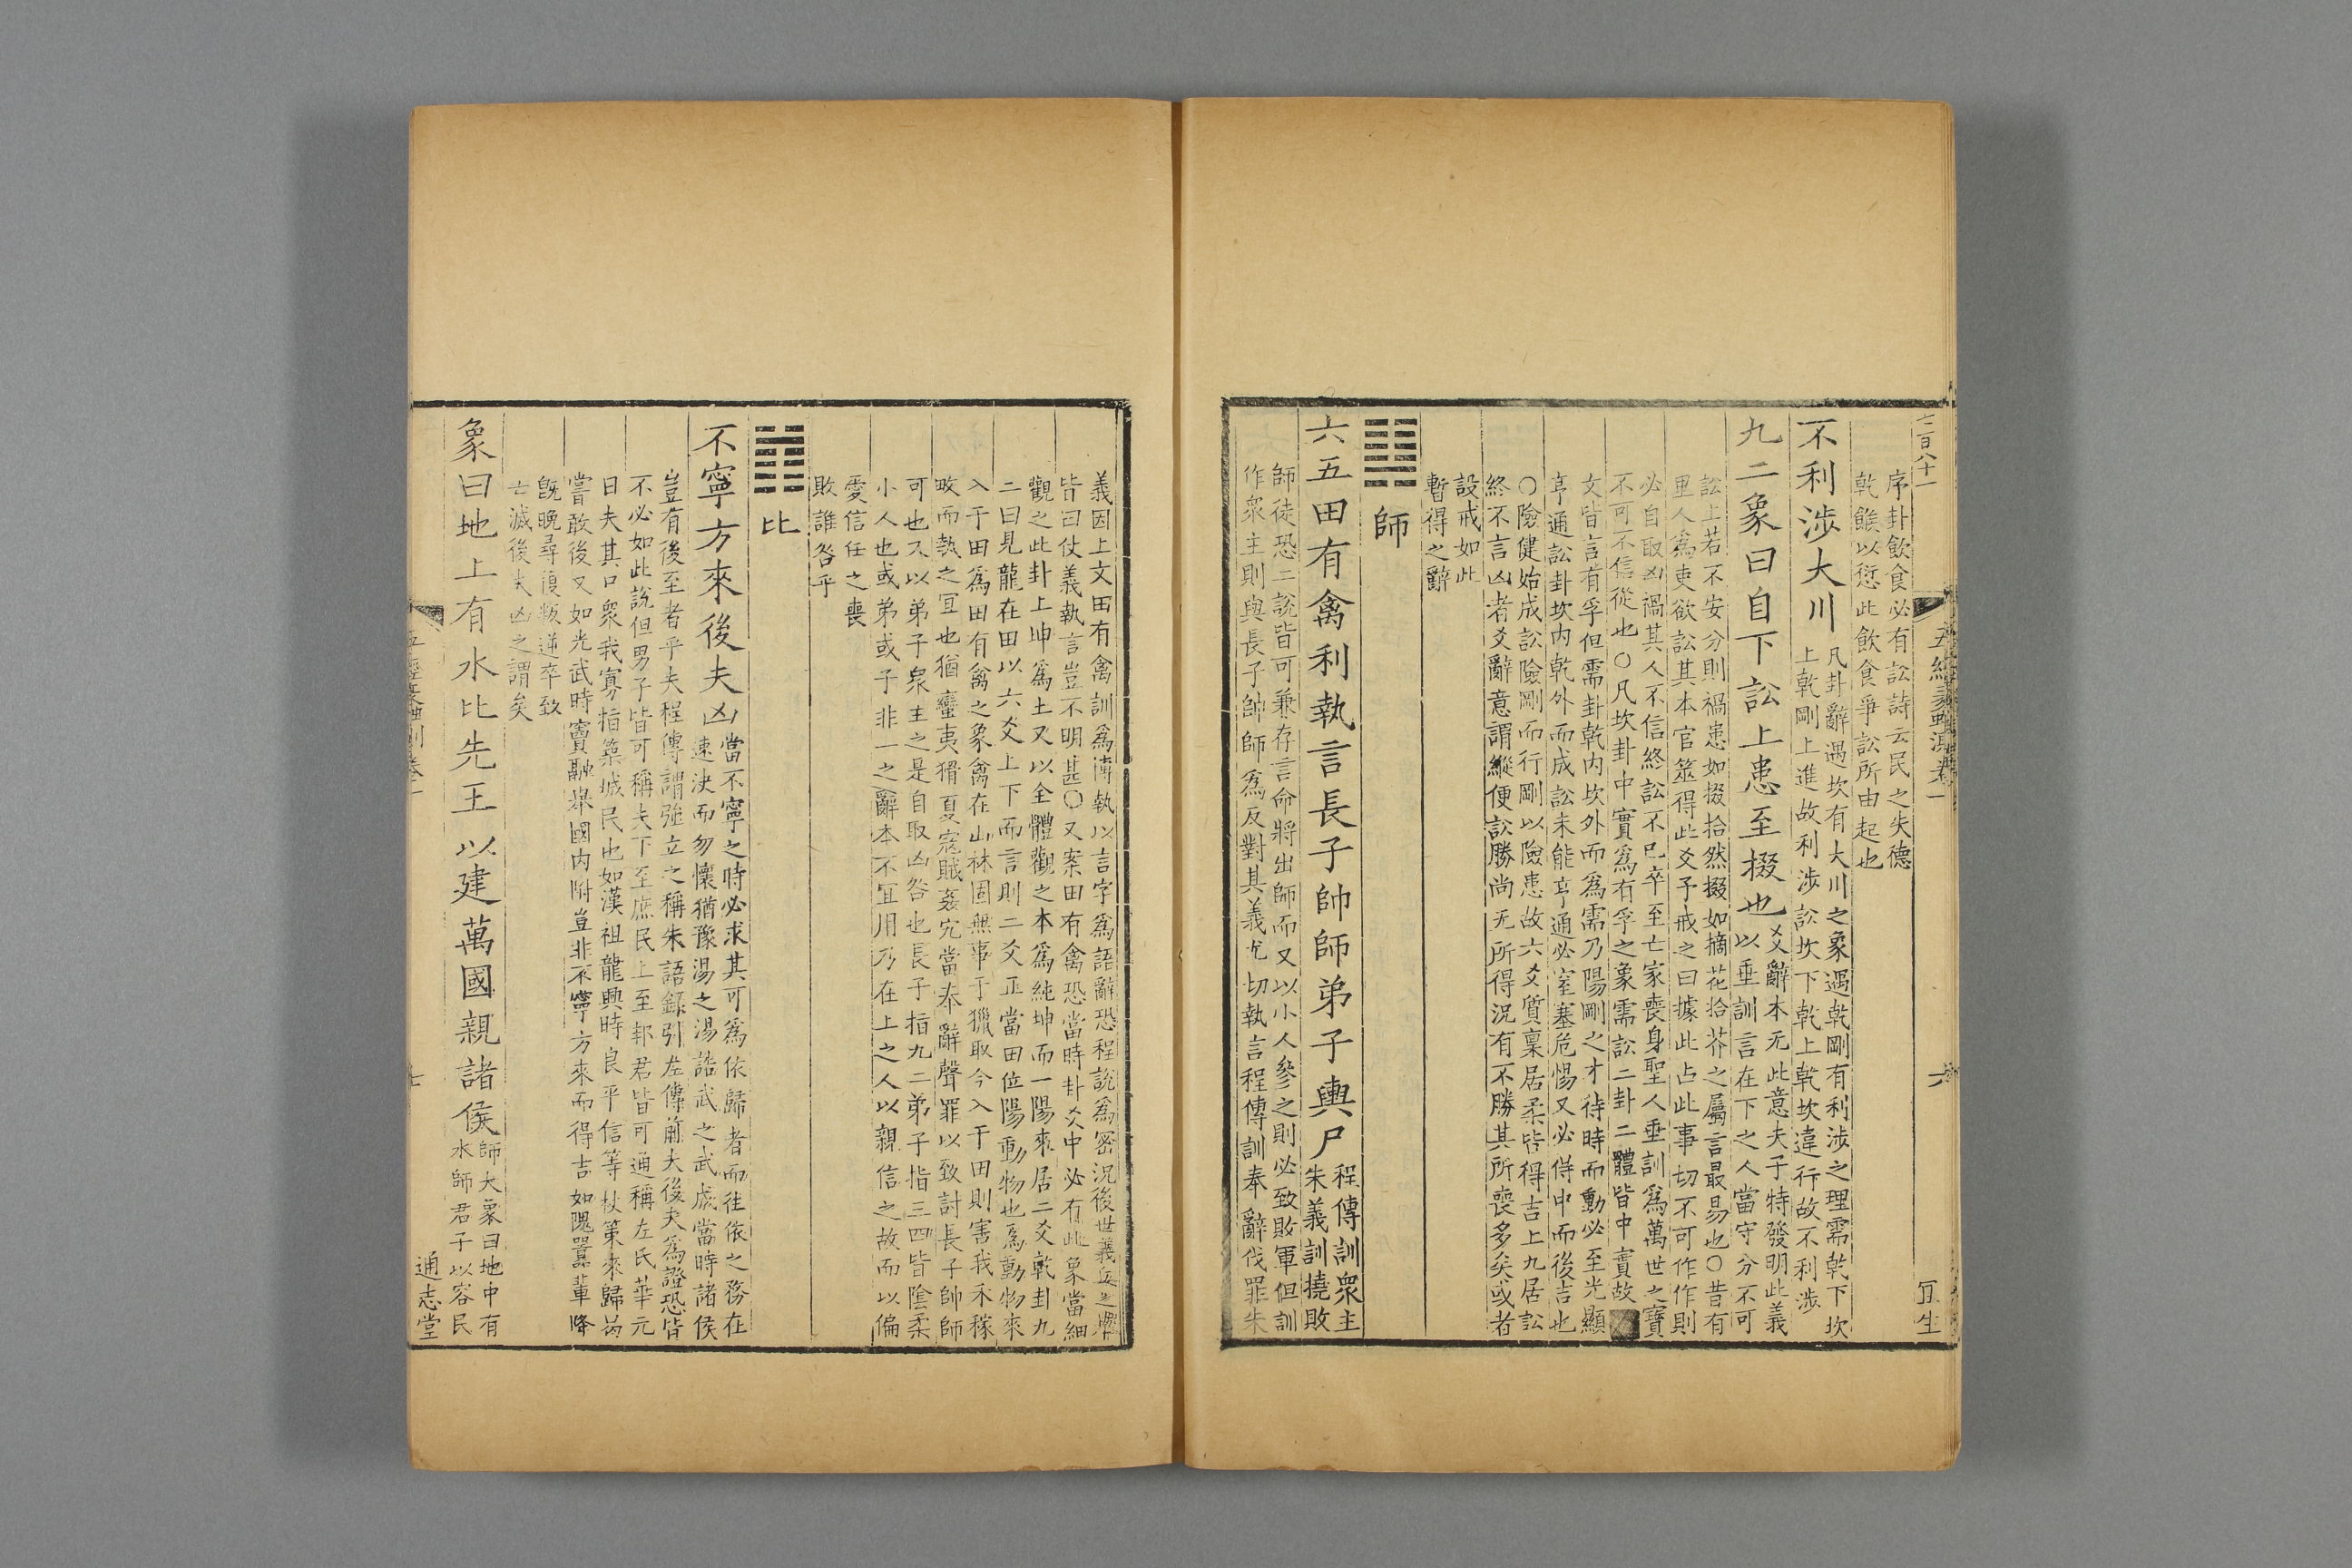 七百八十一
五經蠡測卷一
六
冝生
序卦飲食必有訟詩云民之失德
乾餱以愆此飲食爭訟所由起也
不利涉大川
凡卦辭遇坎有大川之象遇乾剛有利涉之理需乾下坎
上乾剛上進故利涉訟坎下乾上乾坎違行故不利涉
九二象曰自下訟上患至掇也
爻辭本无此意夫子特發明此義
以垂訓言在下之人當守分不可
訟上若不安分則禍患如掇拾然掇如摘花拾芥之屬言最易也○昔有
里人爲吏欲訟其本官筮得此爻予戒之曰據此占此事切不可作作則
必自取凶禍其人不信終訟不已卒至亡家喪身聖人垂訓爲萬世之寶
不可不信從也○凡坎卦中實爲有孚之象需訟二卦二體皆中實故
文皆言有孚但需卦乾内坎外而爲需乃陽剛之才待時而動必至光顯
亨通訟卦坎内乾外而成訟未能亨通必窒塞危惕又必得中而後吉也
○險健始成訟險剛而行剛以險患故六爻質稟居柔皆得吉上九居訟
終不言凶者爻辭意謂縱便訟勝尚无所得況有不勝其所喪多矣或者
設戒如此
暫得之辭
䷆ 師
六五田有禽利執言長子帥師弟子輿尸
程傳訓衆主
朱義訓撓敗
師徒恐二說皆可兼存言命將出師而又以小人參之則必致敗軍但訓
作衆主則與長子帥師爲反對其義尤切執言程傳訓奉辭伐罪朱
義因上文田有禽訓爲慱執以言字爲語辭恐程說爲密況後世義兵之舉
皆曰仗義執言豈不明甚○又案田有禽恐當時卦爻中必有此象當細
觀之此卦上坤爲土又以全體觀之本爲純坤而一陽來居二爻乾卦九
二曰見龍在田以六爻上下而言則二爻正當田位陽動物也爲動物來
入于田爲田有禽之象禽在山林固無事于獵取今入于田則害我禾稼
畋而執之宜也猶蠻夷猾夏寇賊姦宄當奉辭聲罪以致討長子帥師
可也又以弟子衆主之是自取凶咎也長子指九二弟子指三四皆陰柔
小人也或弟或子非一之辭本不宜用乃在上之人以親信之故而以偏
愛信任之喪
敗誰咎乎
䷇ 比
不寧方來後夫凶
當不寧之時必求其可爲依歸者而往依之務在
速決而勿懷猶豫湯之湯誥武之武成當時諸侯
豈有後至者乎夫程傳謂強立之稱朱語錄引左傳前夫後夫爲證恐皆
不必如此說但男子皆可稱夫下至庶民上至邦君皆可通稱左氏華元
曰夫其口衆我寡指築城民也如漢祖龍興時良平信等杖策來歸曷
嘗敢後又如光武時竇融舉國内附豈非不寧方來而得吉如隗囂輩降
旣晚尋復叛逆卒致
亡滅後夫凶之謂矣
象曰地上有水比先王以建萬國親諸侯
師大象曰地中有
水師君子以容民
五經蠡測卷一
七
通志堂